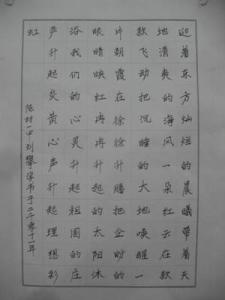 迎着东方灿烂的晨曦带着天
地清爽的海风一朵红云在
款飞动把沉睡的大地唤醒一
片朝霞在徐徐升腾把企盼的
眼睛映红冉冉升起的太阳沐
我们的心灵升起祖国的
声升起炎黄心声升起理想彩
虹
陈村一中刘攀学书于二千零十一年